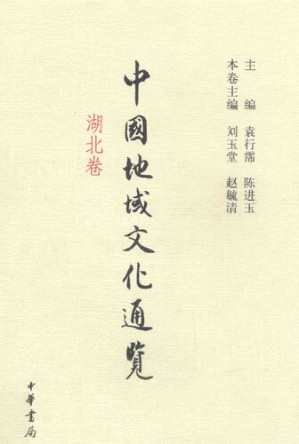 主编 袁行霈 陈进玉
本卷主编 刘玉堂 赵毓清
中國地域文化通览
湖北卷
中華書局